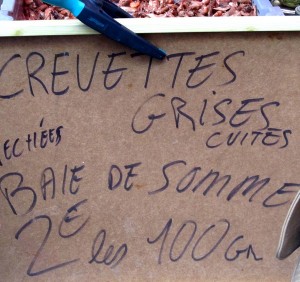 CREVETTES
GRISES
ECHÉES CUITES
BAIE DE SOMME
2E les 100Gr